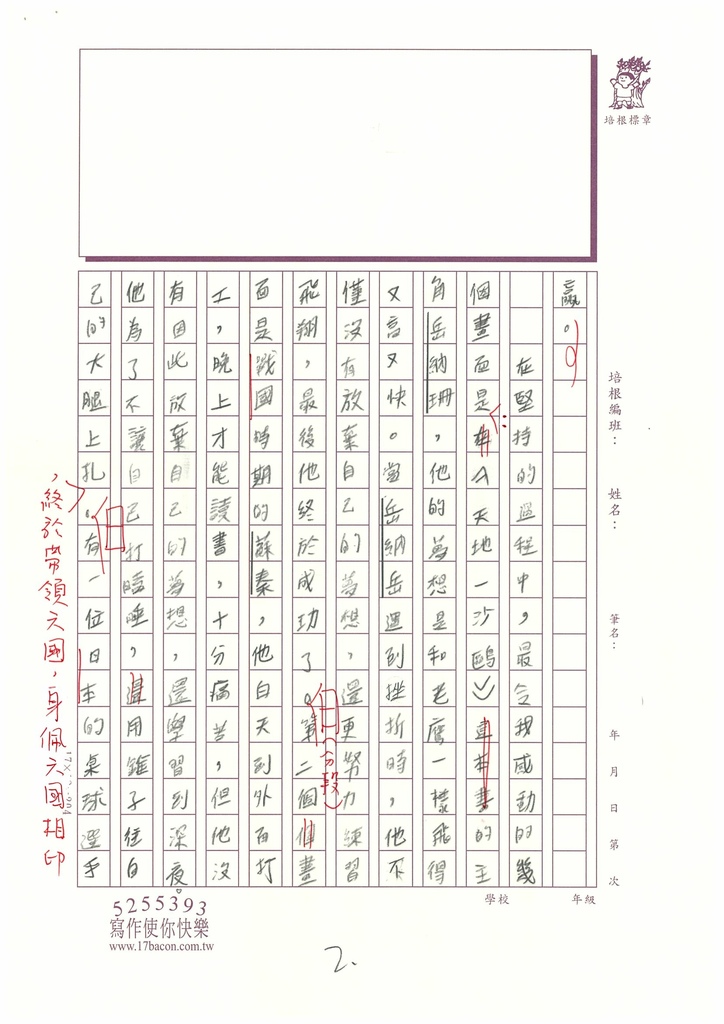 培根標章
贏。
在堅持的過程中，最令我感動的幾
個畫面是：《天地一沙鷗》的主
角岳納珊，他的夢想是和老鷹一樣飛得
又高又快。當岳納岳遇到挫折時，他不
僅沒有放棄自己的夢想，還更努力練習
飛翔，最後他終於成功了。第二個畫
面是戰國時期的蘇秦，他白天到外面打
工，晚上才能讀書，十分痛苦，但他沒
有因此放棄自己的夢想，還學習到深夜。
他為了不讓自己打瞌睡，還用錐子往自
己的大腿上扎。有一位日本的桌球選手
，終於帶領六國，身佩六國相印
(分段)
培根編班：
姓名：
筆名：
年 月 日 第 次
學校
年級
5255393
寫作使你快樂
www.17bacon.com.tw
2.